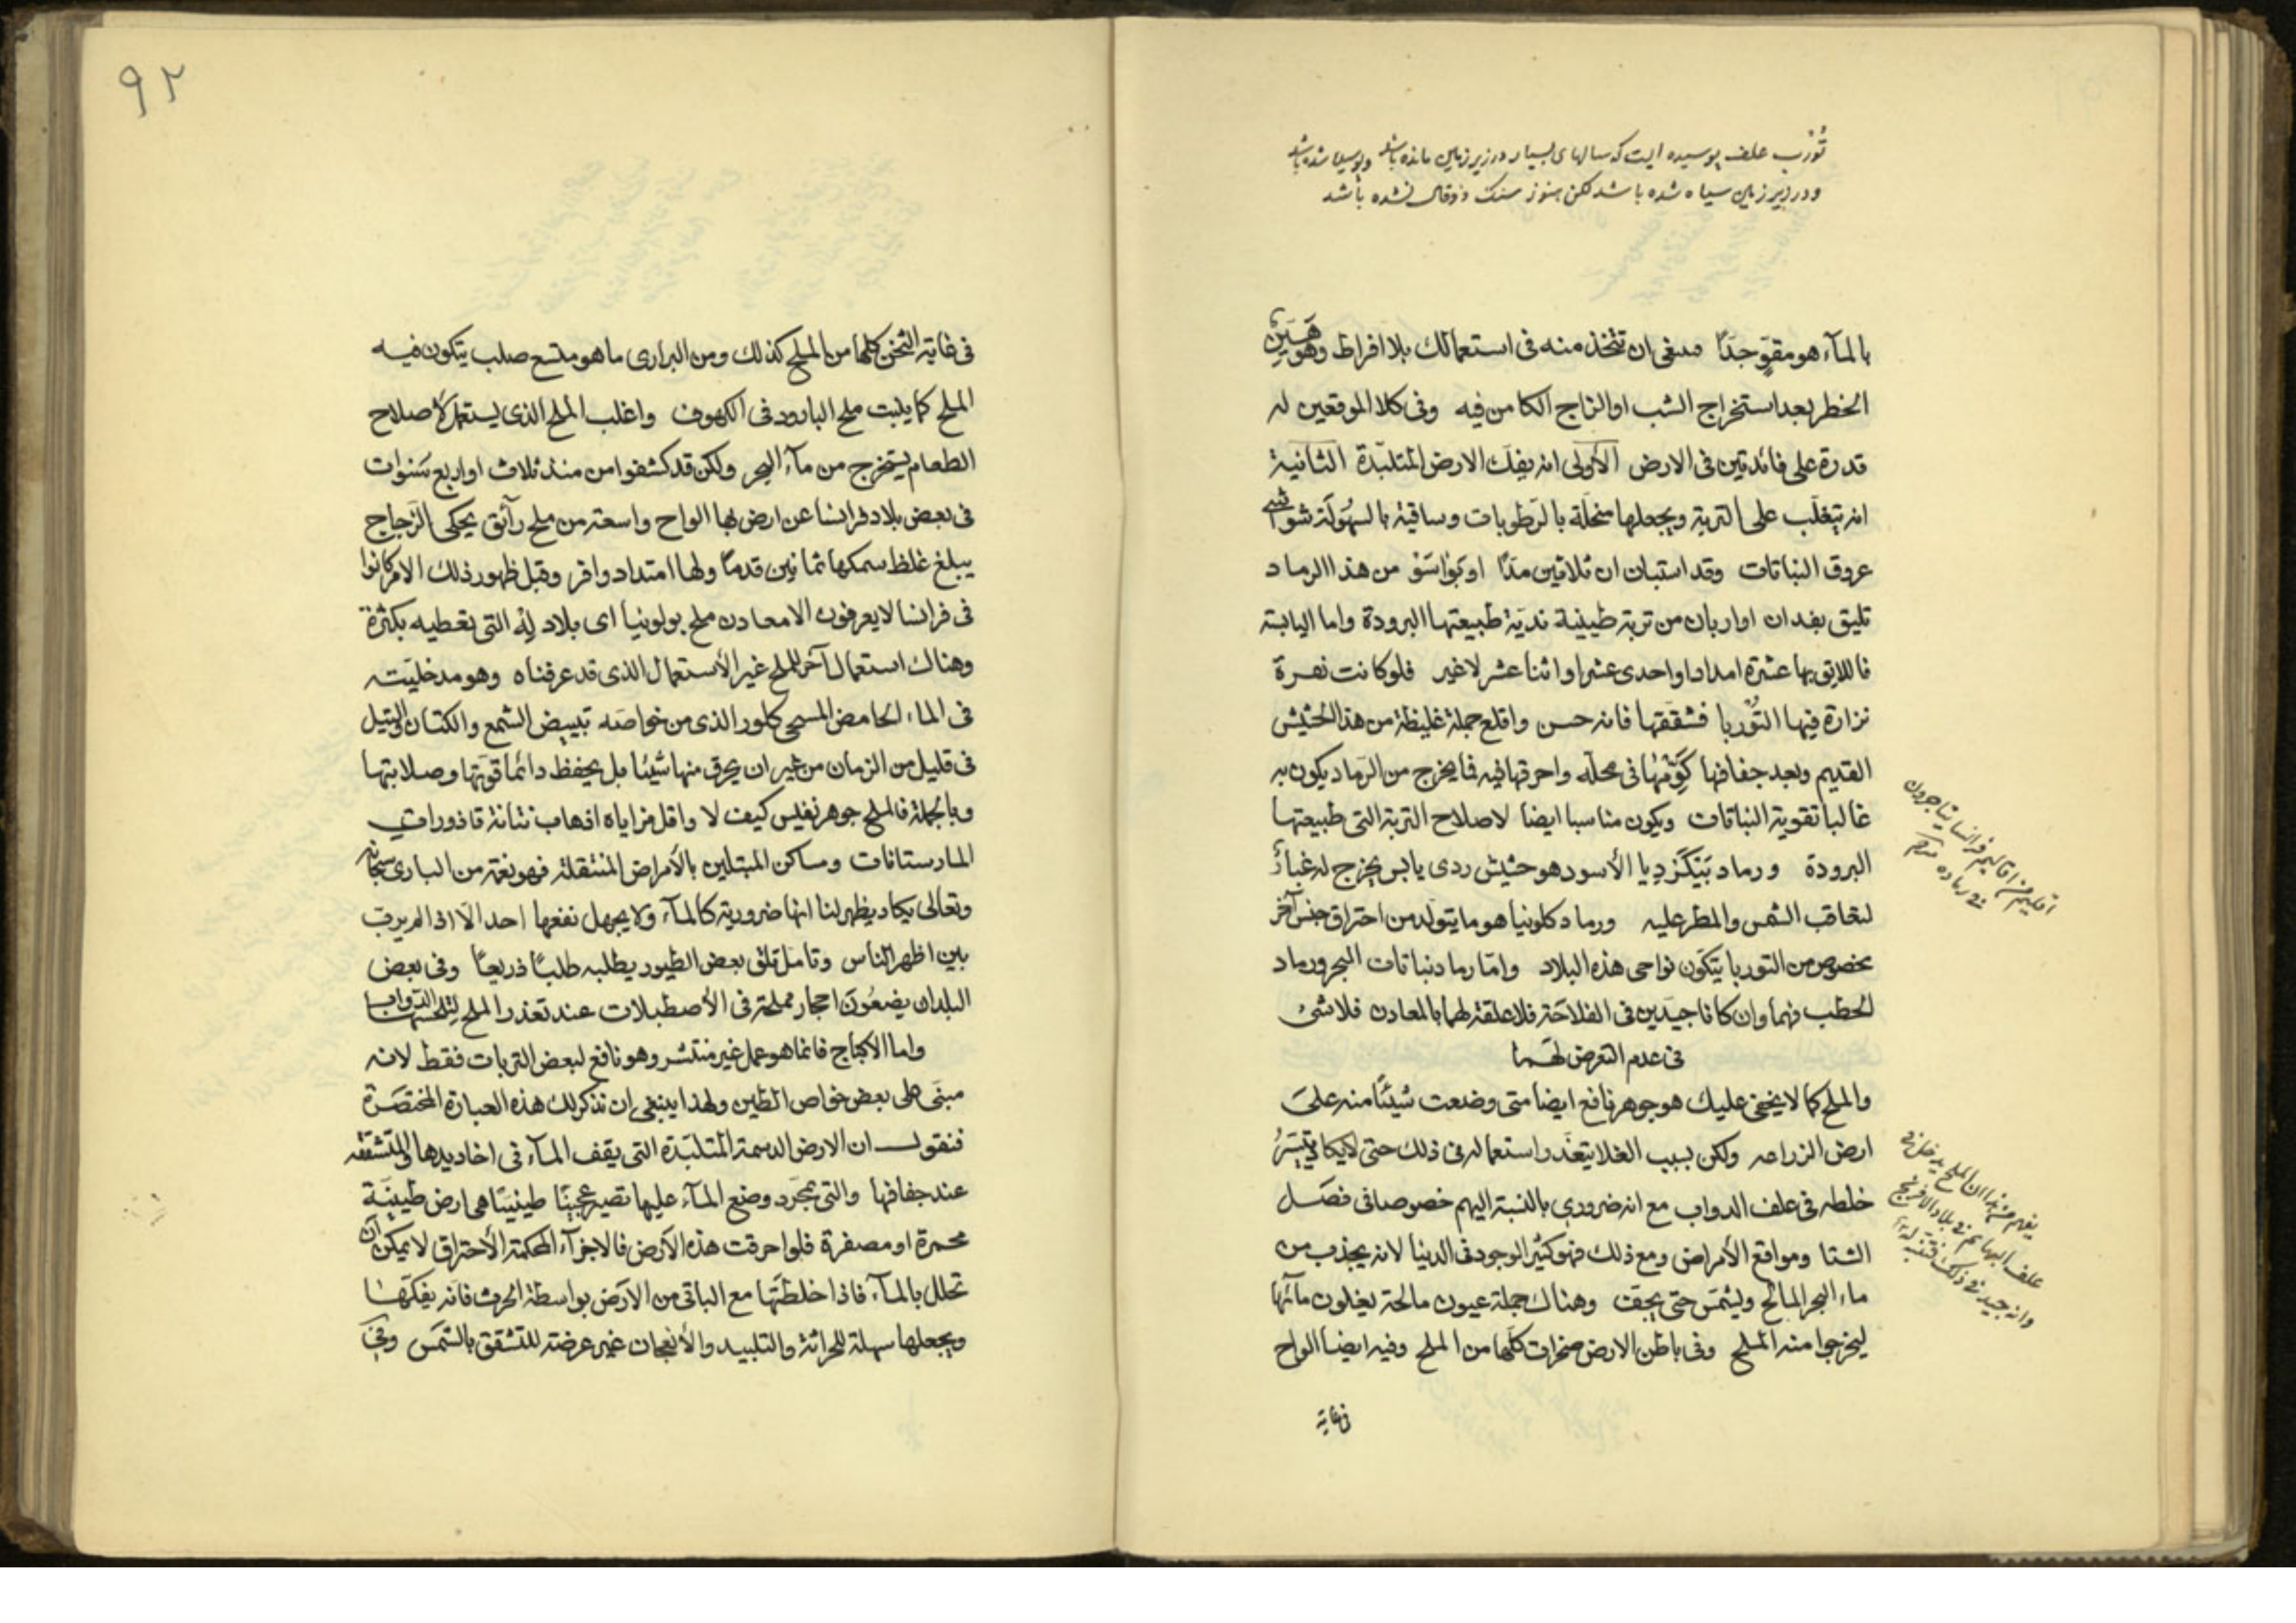 تُوْرْب علف پوسیده ایست که سالهای بسیار در زیر زمین مانده باشد و پوسیده شده باشد
و در زیر زمین سیاه شده باشد لکن هنوز سنک ذوقال نشده باشد
بالمآء هو مقوٍّ جدًا فينبغى ان تتخذ منه فى استعمالك بلا افراط وهو هَيّن
الخطر بعد استخراج الشب او الزاج الكامن فيه وفى كلا الموقعين له
قدرة على فائدتين فى الارض الأولى انه يفك الارض المتلبّدة الثانية
انه يتغلّب على التربة ويجعلها منحلّة بالرّطوبات وساقية بالسهُولَة شواشى
عروق النباتات وقد استبان ان ثلاثين مدًا او بَوْاسَوْ من هذا الرماد
تليق بفدان او اربان من تربة طينية نديّة طبيعتها البرودة واما اليابسة
فاللايق بها عشرة امداد او احدى عشر او اثنا عشر لا غير فلو كانت نهرة
نزازة فيها التُوْربا فشققها فانه حسن واقلع جملة غليظة من هذا الحشيش
القديم وبعد جفافها كَوِّمْهُا فى محلّه واحرقها فيه فما يخرج من الرماد يكون به
غالبا تقوية النباتات ويكون مناسبا ايضا لاصلاح التربة التى طبيعتها
البرودة ورماد بَيْكَرْدِيا الأسود هو حشيش ردى يابس يخرج له غباءٌ
لتعاقب الشمس والمطر عليه ورماد كلونيا هو ما يتولد من احتراق جنس آخر
مخصوص من التوربا يتكون نواحى هذه البلاد وامّا رماد نباتات البحر ورماد
الحطب فهما وان كانا جيدين فى الفلاحَة فلا علقة لهما بالمعادن فلا شئ
فى عدم التعرض لهما
والملح كما لا يخفى عليك هو جوهر نافع ايضا متى وضعت شيئًا منه على
ارض الزراعه ولكن بسبب الغلا يتعذّر استعماله فى ذلك حتى لا يكاد يتيسّرُ
خلطه فى علف الدواب مع انه ضرورى بالنسبة اليهم خصوصا فى فصل
الشتا ومواقع الأمراض ومع ذلك فهو كثير الوجود فى الدنيا لانه يجذب من
ماء البحر المالح ويشمّس حتى يجف وهناك جملة عيون مالحة يغلون مآئها
ليخرجوا منه الملح وفى باطن الارض صخرات كلّها من الملح وفيه ايضا الواح
فى غاية
اقليم من اقاليم فرانسا يتاجرون
فى رماده
يفهم من هذا ان الملح يدخل فى
علف البهائم فى بلاد الافرنج
وانه جيد فى ذلك فتنبه له
٩٢
فى غاية الثخن كلها من الملح كذلك ومن البرارى ما هو متسع صلب يتكون فيه
الملح كما ينبت ملح البارود فى الكهوف واغلب الملح الذى يستعمل لأصلاح
الطعام يستخرج من مآء البحر ولكن قد كشفوا من منذ ثلاث او اربع سَنوات
فى بعض بلاد فرانسا عن ارض بها الواح واسعة من ملح رآئق يحكى الزجاج
يبلغ غلظ سمكها ثمانين قدمًا ولها امتداد وافر وقبل ظهور ذلك الامر كانوا
فى فرانسا لا يعرفون الا معادن ملح بولونيا اى بلاد لِهْ التى تعطيه بكثرة
وهناك استعمال آخر للملح غير الأستعمال الذى قد عرفناه وهو مدخليّته
فى الماء الحامض المسمى كلور الذى من خواصه تبييض الشمع والكتان والتيل
فى قليل من الزمان من غير ان يحرق منها شيئا بل يحفظ دائما قوتها وصلابتها
وبالجملة فالملح جوهر نفيس كيف لا واقل مزاياه اذهاب نتانة قاذورات
المارستانات ومساكن المبتلين بالأمراض المنتقلة فهو نعمة من البارى سبحانه
وتعالى يكاد يظهر لنا انها ضرورية كالمآء ولا يجهل نفعها احد الّا اذا لم يربّ
بين اظهر الناس وتامّل تلق بعض الطيور يطلبه طلبًا ذريعًا وفى بعض
البلدان يضعُون احجار مملحة فى الأصطبلات عند تعذر الملح لتلحسها الدواب
واما الاجاج فانما هو عمل غير منتشر وهو نافع لبعض التربات فقط لانه
مبنى على بعض خواص الطين ولهذا ينبغى ان نذكر لك هذه العبارة المختصَرة
فنقول ان الارض الدسمة المتلبّدة التى يقف المآء فى اخاديدها والمتشققه
عند جفافها والتى بمجرّد وضع المآء عليها تصير عجينًا طينيًا هى ارض طينيَة
محمرة او مصفرة فلو احرقت هذه الأرض فالاجزآء المحكمة الأحتراق لا يمكن أن
تحلل بالمآء فاذا خلطتَها مع الباقى من الأرض بواسطة الحرث فانه يفككها
ويجعلها سهلة للحراثة والتلبيد والأنعجان غير عرضة للتشقق بالشمس وفى